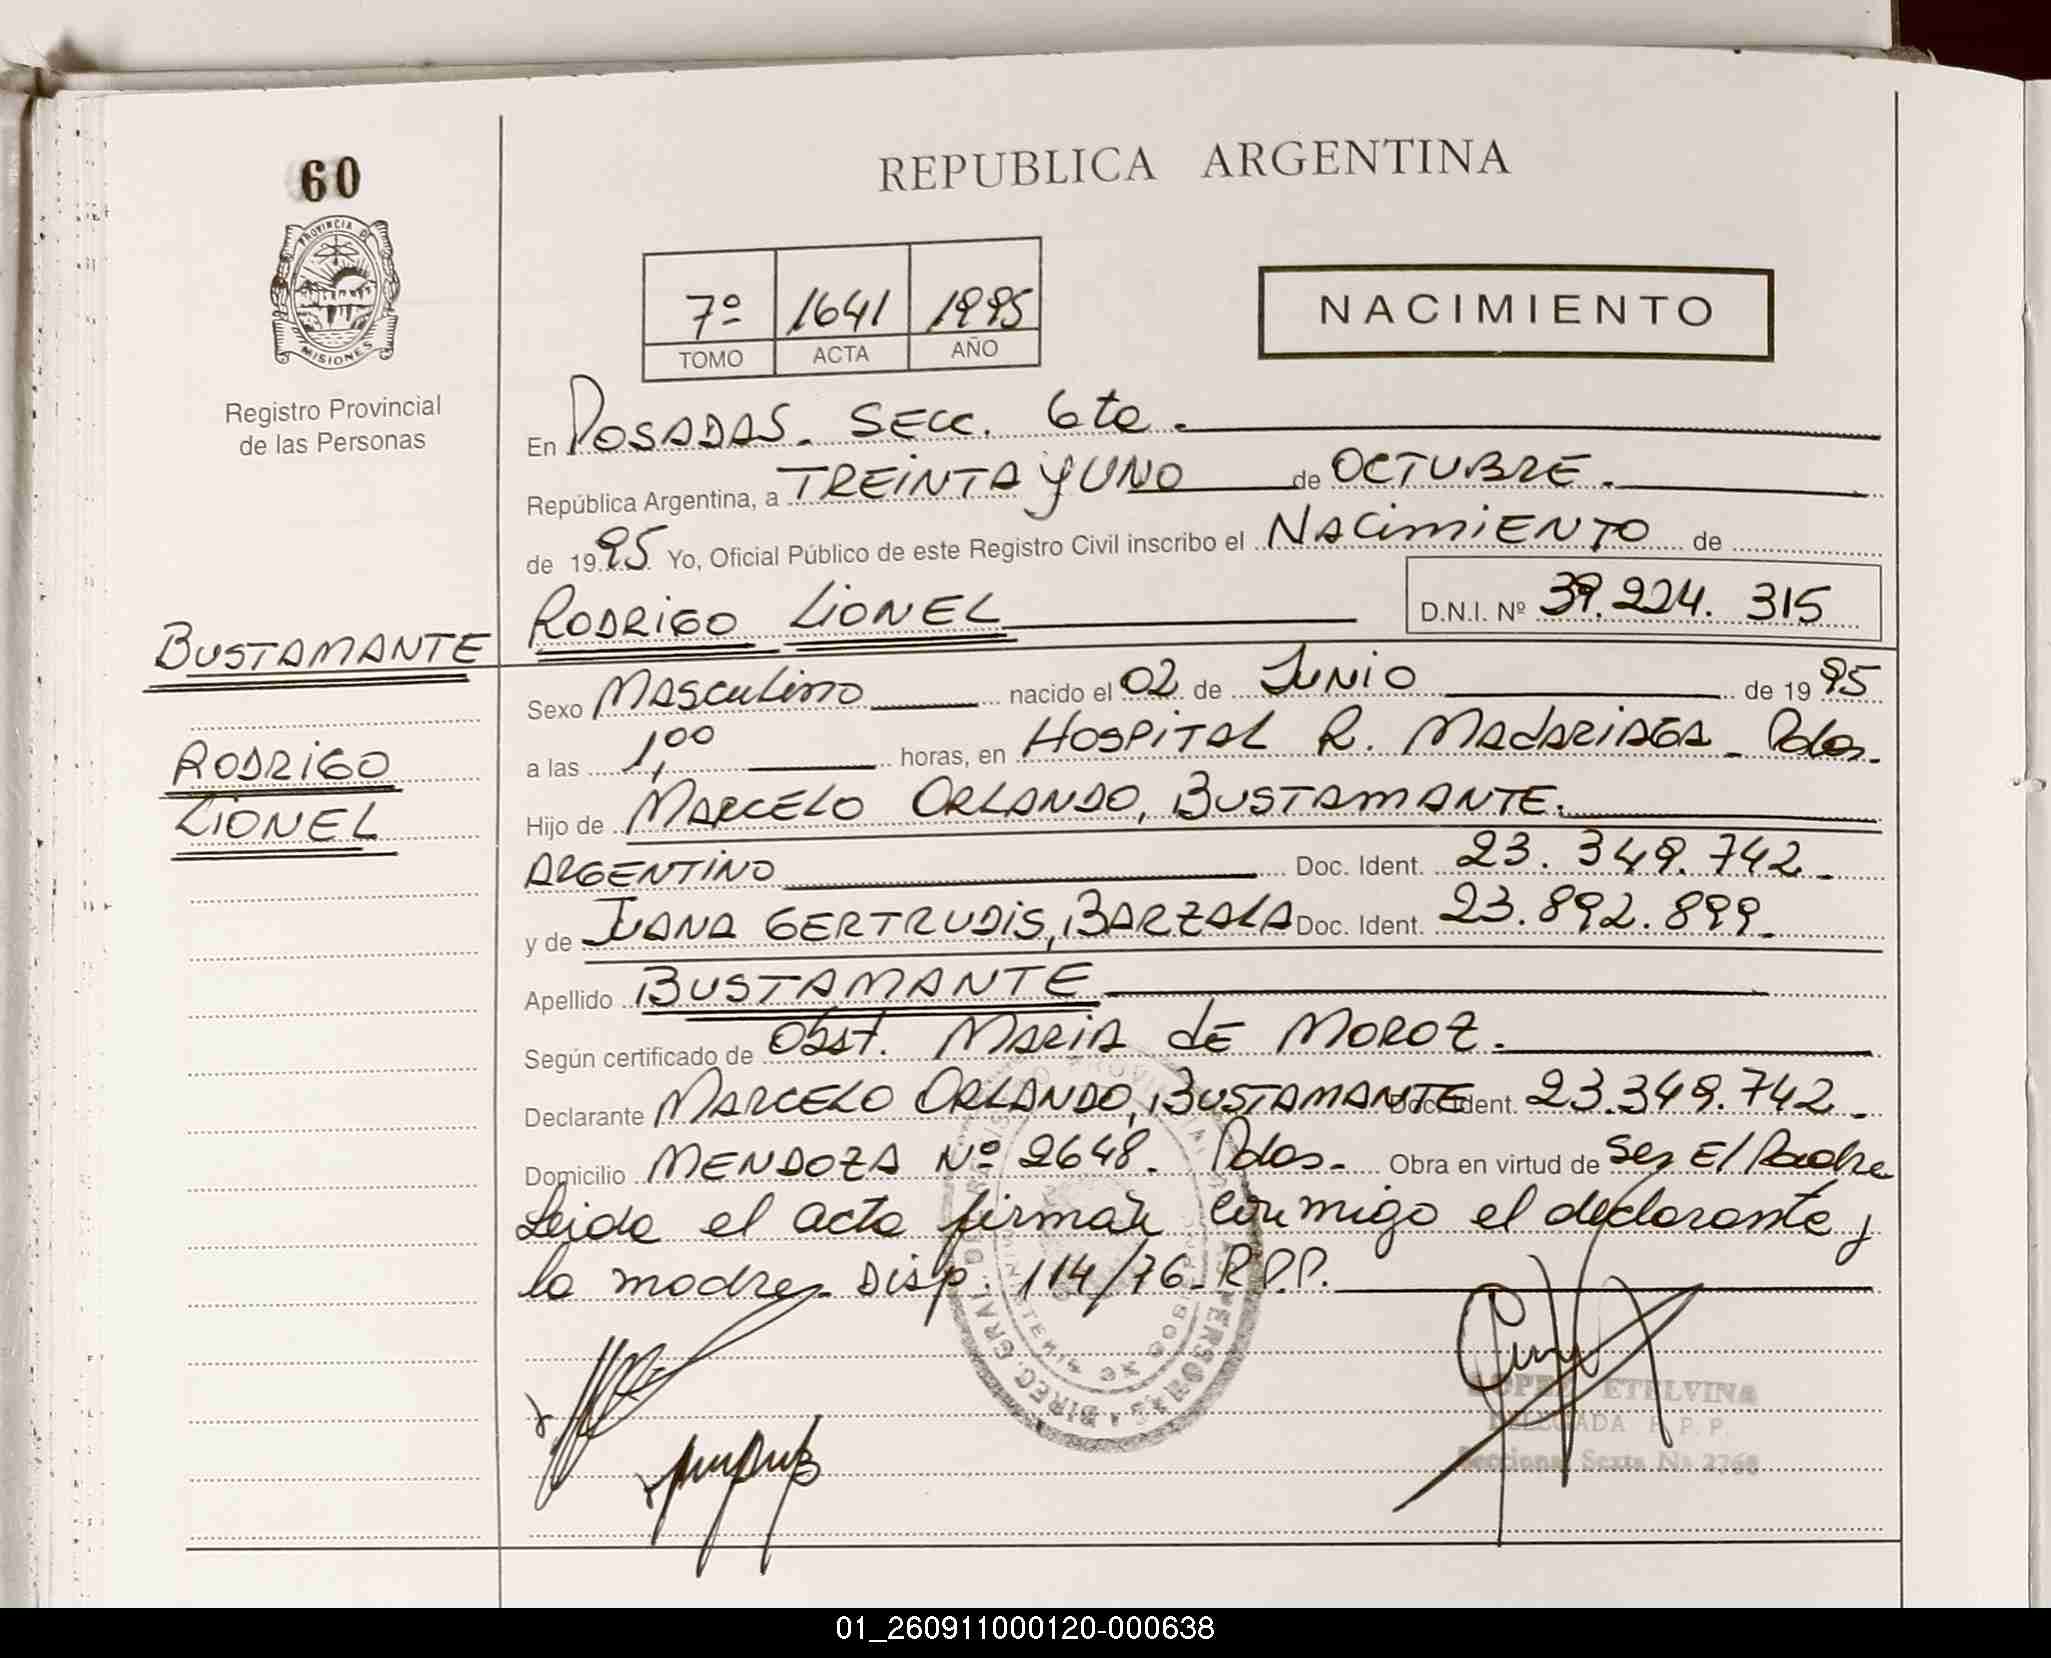 60
REPUBLICA ARGENTINA
PROVINCIA DE MISIONES
Registro Provincial
de las Personas
7º 1641 1995
TOMO ACTA AÑO
NACIMIENTO
En POSADAS. SECC. 6ta.
República Argentina, a TREINTA Y UNO de OCTUBRE.
de 1995. Yo, Oficial Público de este Registro Civil inscribo el NACIMIENTO de
RODRIGO LIONEL D.N.I. Nº 39.224.315
BUSTAMANTE
RODRIGO
LIONEL
Sexo MASCULINO nacido el 02 de JUNIO de 1995
a las 1,00 horas, en HOSPITAL R. MADARIAGA - Pdas.
Hijo de MARCELO ORLANDO, BUSTAMANTE.
ARGENTINO Doc. Ident. 23.349.742.
y de JUANA GERTRUDIS, BARZALA Doc. Ident. 23.892.899.
Apellido BUSTAMANTE
Según certificado de Obst. MARIA de MOROZ.
Declarante MARCELO ORLANDO, BUSTAMANTE Doc. Ident. 23.349.742.
Domicilio MENDOZA Nº 2648. Pdas. Obra en virtud de Ser El Padre
Leida el acta firman conmigo el declarante y
la madre. Disp. 114/76-R.P.P.
LOPEZ ETELVINA
DELEGADA R. P. P.
Seccional Sexta Nº 2768
01_260911000120-000638